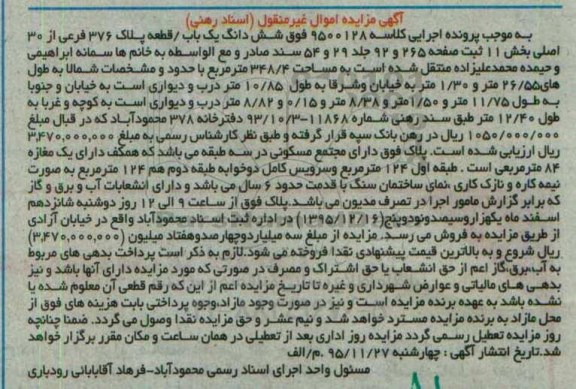 آگهی مزایده اموال غیرمنقول (اسناد رهنی)
به موجب پرونده اجرایی کلاسه ۹۵۰۰۱۲۸ فوق شش دانگ یک باب /قطعه پلاک ۳۷۶ فرعی از ۳۰
اصلی بخش ۱۱ ثبت صفحه ۲۶۵ و ۹۲ جلد ۲۹ و ۵۴ سند صادر و مع الواسطه به خانم ها سمانه ابراهیمی
و حیمده محمدعلیزاده منتقل شده است به مساحت ۳۴۸/۴ مترمربع با حدود و مشخصات شمالا به طول
های۲۶/۵۵ متر و ۱/۳۰ متر به خیابان وشرقا به طول ۱۰/۸۵ متر درب و دیواری است به خیابان و جنوبا
به طول ۱۱/۷۵ متر و ۱/۵۰متر و ۸/۳۸ متر و ۰/۱۵ و ۸/۸۲ متر درب و دیواری است به کوچه و غربا به
طول ۱۲/۴۰ متر طبق سند رهنی شماره ۱۱۸۶۸-۹۳/۱۰/۳ دفترخانه ۳۷۸ محمودآباد که در قبال مبلغ
۱۰۵۰/۰۰۰/۰۰۰ ریال در رهن بانک سپه قرار گرفته و طبق نظر کارشناس رسمی به مبلغ ۳,۴۷۰,۰۰۰,۰۰۰
ریال ارزیابی شده است. پلاک فوق دارای مجتمع مسکونی در سه طبقه می باشد که همکف دارای یک مغازه
۸۴ مترمربعی است . طبقه اول ۱۲۴ مترمربع وسرویس کامل دوخوابه طبقه دوم هم ۱۲۴ مترمربع به صورت
نیمه کاره و نازک کاری ،نمای ساختمان سنگ با قدمت حدود ۶ سال می باشد و دارای انشعابات آب و برق و گاز
که برابر گزارش مامور اجرا در تصرف مدیون می باشد.پلاک فوق از ساعت ۹ الی ۱۲ روز دوشنبه شانزدهم
اسفند ماه یکهزاروسیصدونودوپنج(۱۳۹۵/۱۲/۱۶) در اداره ثبت اسناد محمودآباد واقع در خیابان آزادی
از طریق مزایده به فروش می رسد. مزایده از مبلغ سه میلیاردوچهارصدوهفتاد میلیون (۳,۴۷۰,۰۰۰,۰۰۰)
ریال شروع و به بالاترین قیمت پیشنهادی نقدا فروخته می شود.لازم به ذکر است پرداخت بدهی های مربوط
به آب،برق،گاز اعم از حق انشعاب یا حق اشتراک و مصرف در صورتی که مورد مزایده دارای آنها باشد و نیز
بدهی های مالیاتی و عوارض شهرداری و غیره تا تاریخ مزایده اعم از این که رقم قطعی آن معلوم شده یا
نشده باشد به عهده برنده مزایده است و نیز در صورت وجود مازاد،وجوه پرداختی بابت هزینه های فوق از
محل مازاد به برنده مزایده مسترد خواهد شد و نیم عشر و حق مزایده نقدا وصول می گردد. ضمنا چنانچه
روز مزایده تعطیل رسمی گردد مزایده روز اداری بعد از تعطیلی در همان ساعت و مکان مقرر برگزار خواهد
شد.تاریخ انتشار آگهی : چهارشنبه ۹۵/۱۱/۲۷ .م/الف
مسئول واحد اجرای اسناد رسمی محمودآباد-فرهاد آقابابائی رودباری